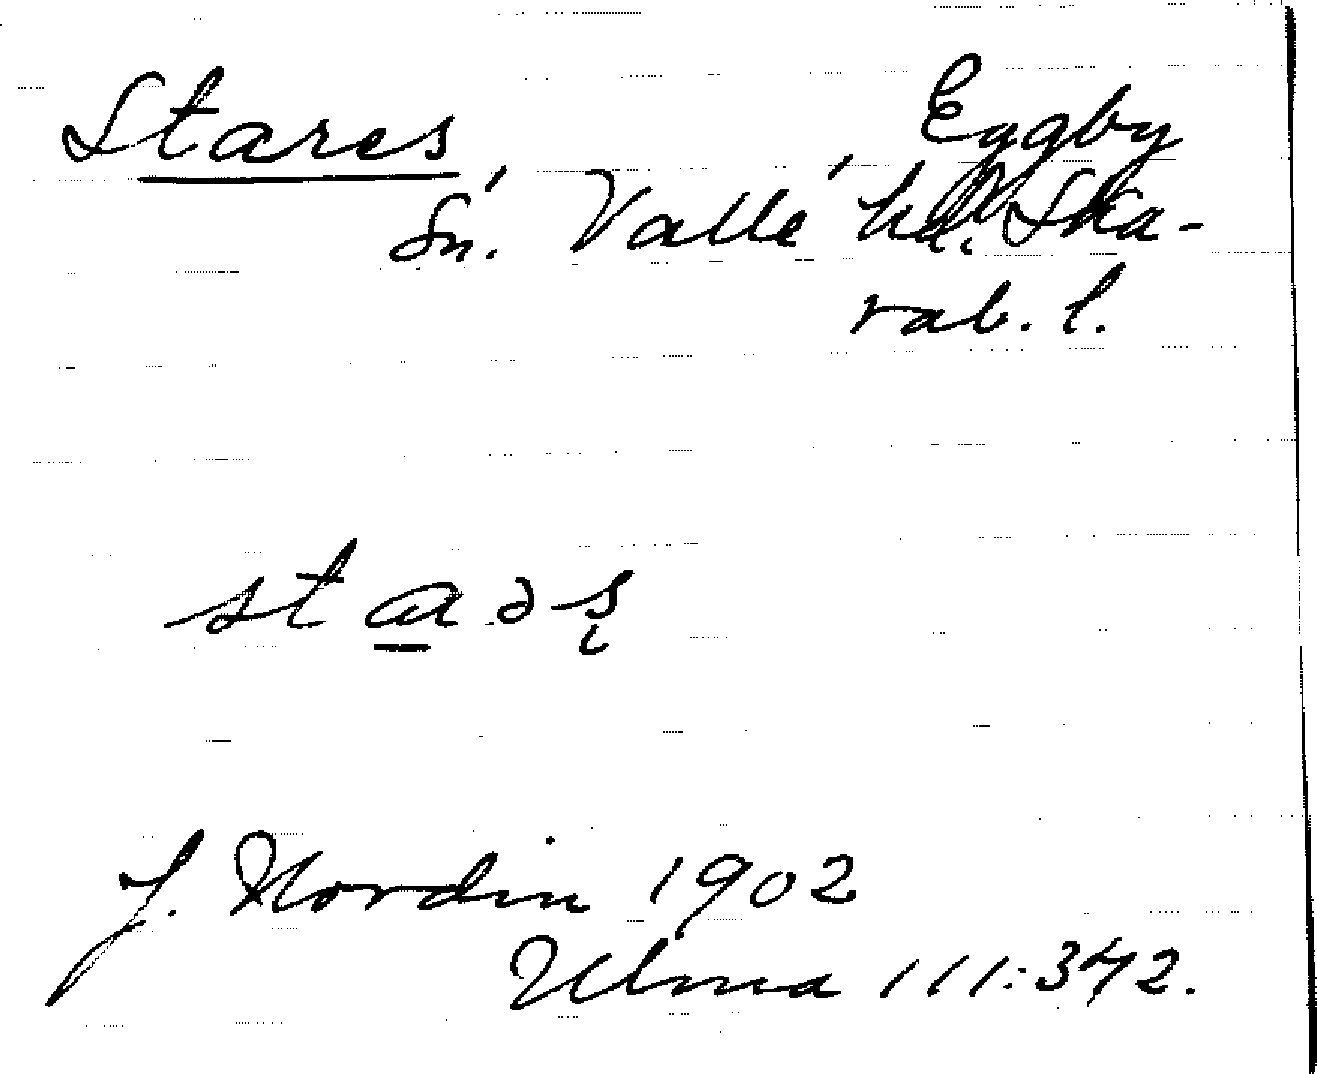 Stares Eggby
Sn. Valle hd. Ska-
rab. l.
staəs
J. Nordin 1902
Ulma 111:342.